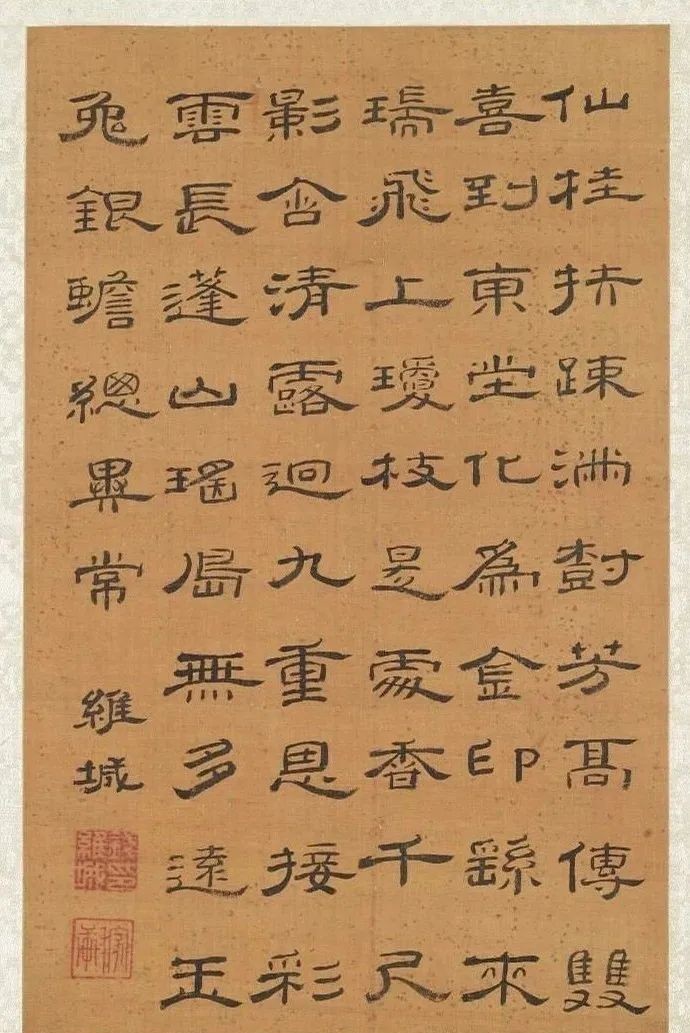 仙桂扶踈滿樹芳高傳雙
喜到東堂化為金印繇來
瑞飛上瓊枝是處香千尺
影含清露迥九重恩接彩
雲長蓬山瑤島無多遠玉
兔銀蟾總異常
維城